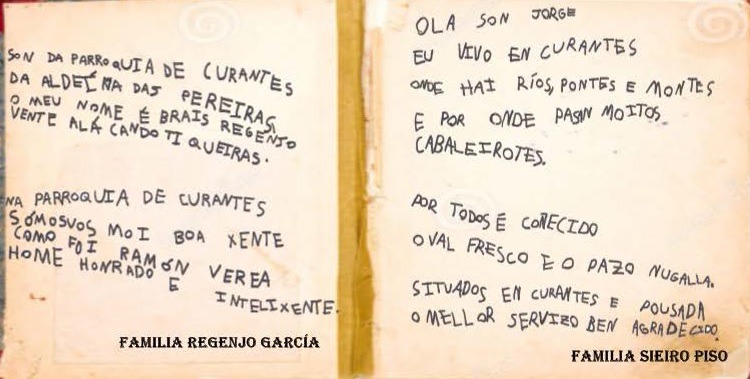 SON DA PARROQUIA DE CURANTES
DA ALDEÍÑA DAS PEREIRAS,
O MEU NOME É BRAIS REGENJO
VENTE ALÁ CANDO TI QUEIRAS.
NA PARROQUIA DE CURANTES
SOMOSVOS MOI BOA XENTE
COMO FOI RAMÓN VEREA
HOME HONRADO E INTELIXENTE.
FAMILIA REGENJO GARCÍA
OLA SON JORGE
EU VIVO EN CURANTES
ONDE HAI RÍOS, PONTES E MONTES
E POR ONDE PASAN MOITOS
CABALEIROTES.
POR TODOS É COÑECIDO
O VAL FRESCO E O PAZO NUGALLA.
SITUADOS EN CURANTES E POUSADA
O MELLOR SERVIZO BEN AGRADECIDO.
FAMILIA SIEIRO PISO